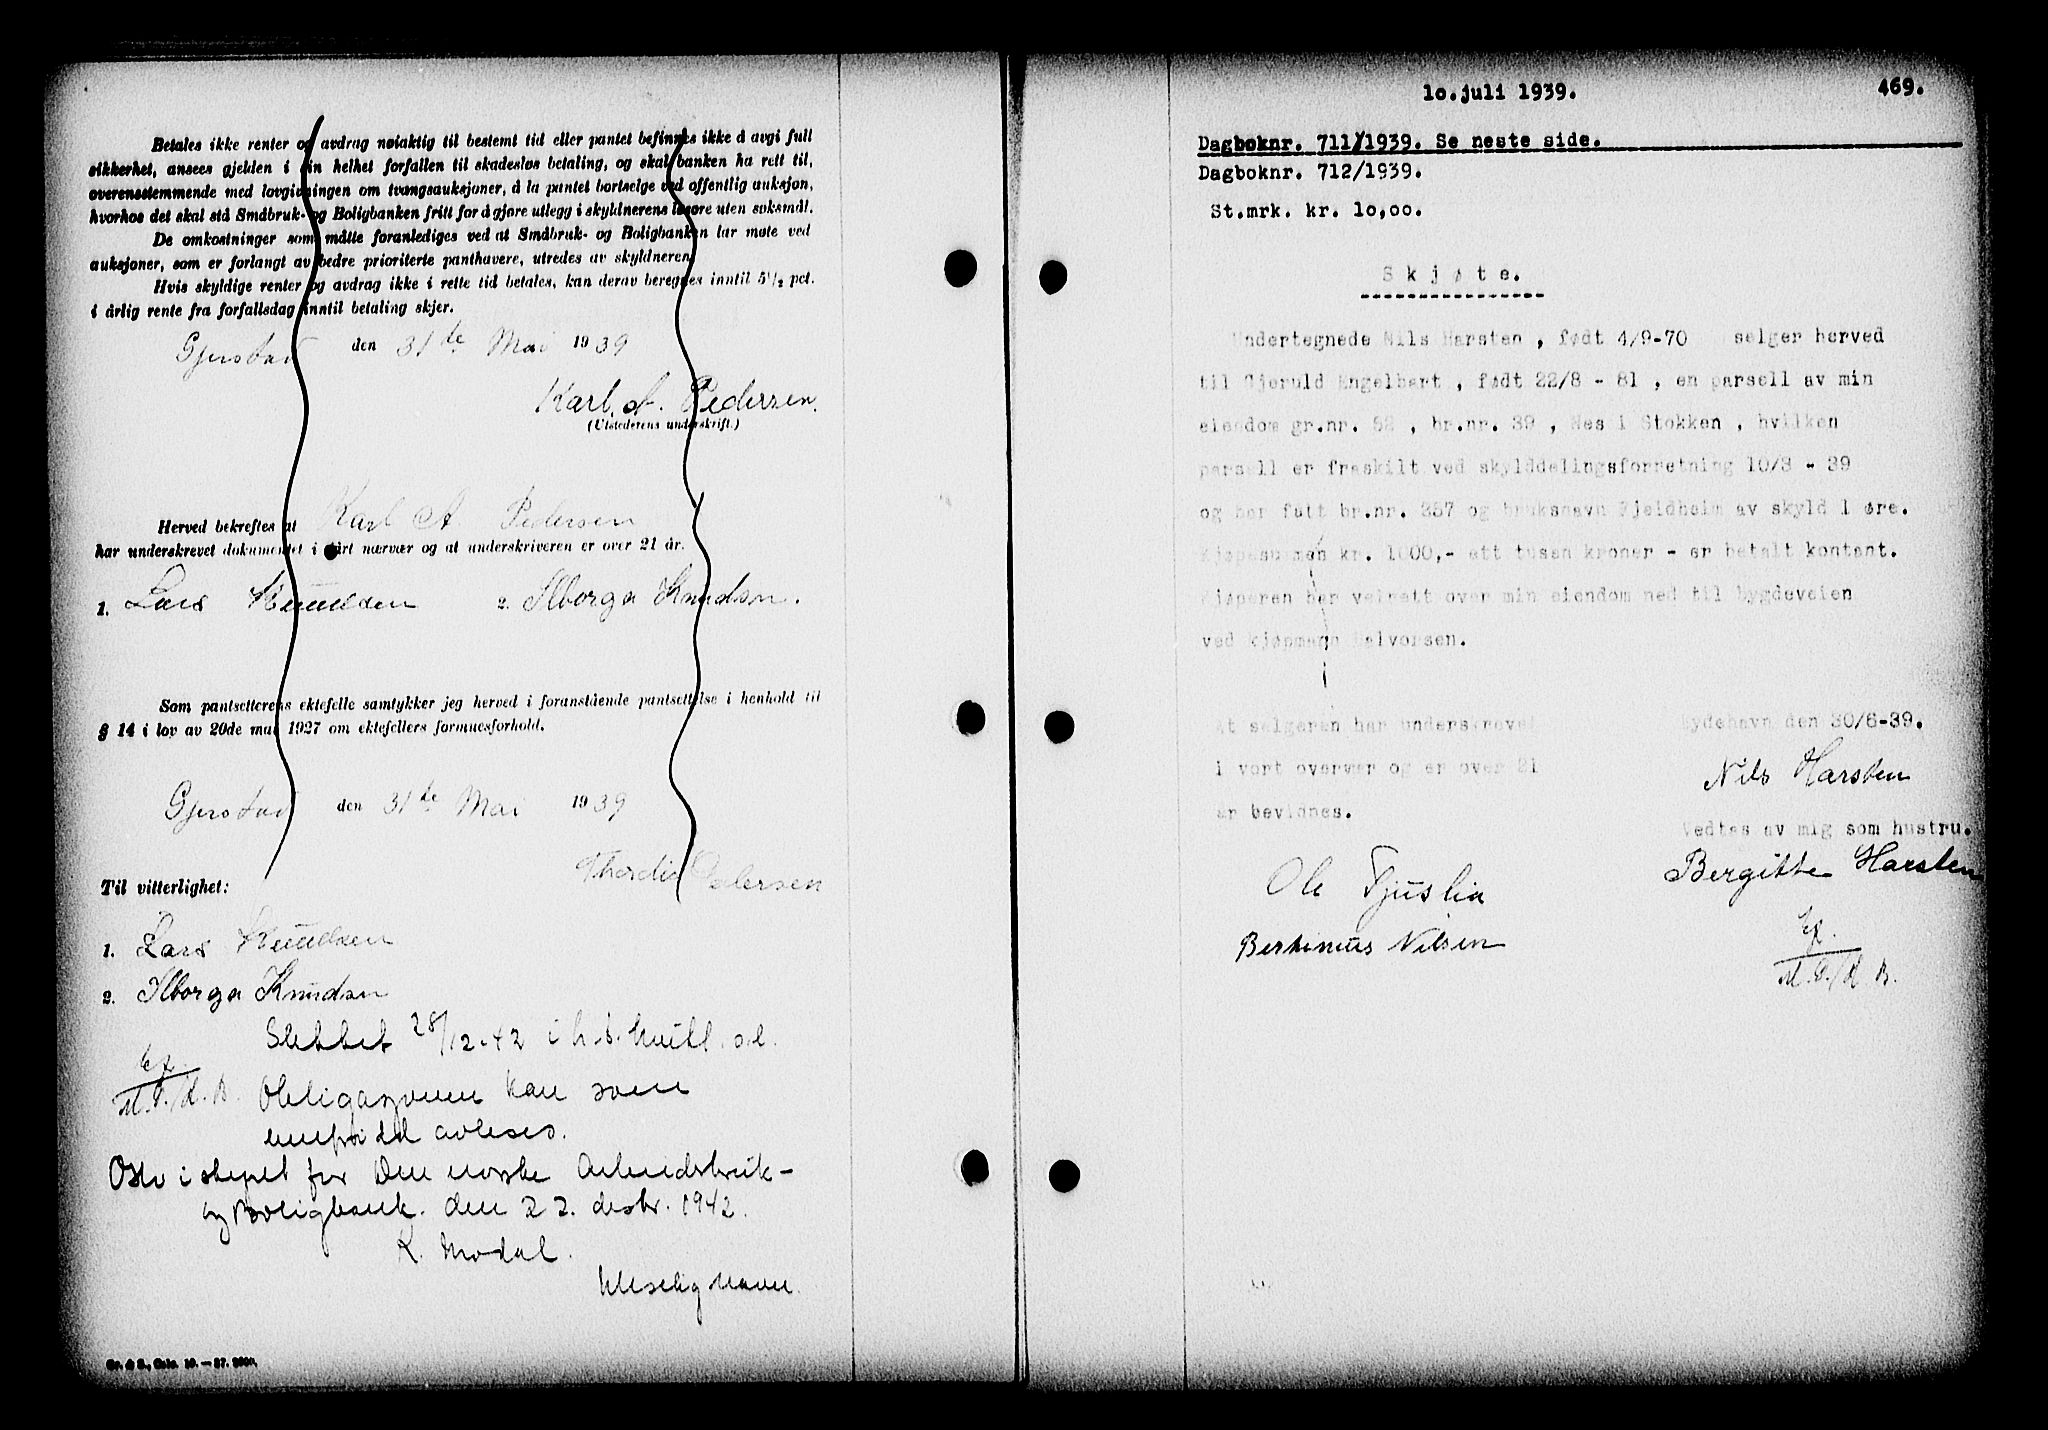 Betales ikke renter og avdrag nøiaktig til bestemt tid eller pantet befinnes ikke å avgi full
sikkerhet, ansees gjelden i sin helhet forfallen til skadesløs betaling, og skal banken ha rett til,
overensstemmende med lovgivningen om tvangsauksjoner, å la pantet bortselge ved offentlig auksjon,
hvorhos det skal stå Småbruk- og Boligbanken fritt for å gjøre utlegg i skyldnerens løsøre uten søksmål.
De omkostninger som måtte foranlediges ved at Småbruk- og Boligbanken lar møte ved
auksjoner, som er forlangt av bedre prioriterte panthavere, utredes av skyldneren.
Hvis skyldige renter og avdrag ikke i rette tid betales, kan derav beregnes inntil 5½ pct.
i årlig rente fra forfallsdag inntil betaling skjer.
Gjerstad den 31te Mai 1939
Karl A. Pedersen.
(Utstederens underskrift.)
Herved bekreftes at Karl A. Pedersen
har underskrevet dokumentet i vårt nærvær og at underskriveren er over 21 år.
1. Lars Knudsen 2. Ilborga Knudsen.
Som pantsetterens ektefelle samtykker jeg herved i foranstående pantsettelse i henhold til
§ 14 i lov av 20de mai 1927 om ektefellers formuesforhold.
Gjerstad den 31te Mai 1939
Thordis Pedersen
Til vitterlighet:
1. Lars Knudsen
2. Ilborga Knudsen
Slettet 28/12-42 i h.t. kvitt. o.l.
Ef.
M.P./K.B. Obligasjonen kan som
innfridd avleses.
Oslo i styret for Den norske Arbeidsbruk-
og Boligbank. den 22. desbr. 1942.
K. Modal.
Uleselig navn.
Gr. & S., Oslo. 10. — 37. 2000.
10.juli 1939. 469.
Dagboknr. 711/1939. Se neste side.
Dagboknr. 712/1939.
St.mrk. kr. 10,00.
Skjøte.
Undertegnede Nils Harsten , født 4/9-70 selger herved
til Gjeruld Engelbert , født 22/8 - 81 , en parsell av min
eiendom gr.nr. 52 , br.nr. 39 , Nes i Stokken , hvilken
parsell er fraskilt ved skylddelingsforretning 10/3 - 39
og har fått br.nr. 357 og bruksnavn Fjeldheim av skyld 1 øre.
Kjøpesummen kr. 1000,- ett tusen kroner - er betalt kontant.
Kjøperen har veirett over min eiendom ned til bygdeveien
ved kjøpmann Halvorsen.
At selgeren har underskrevet Eydehavn den 30/6-39.
i vort overvær og er over 21 Nils Harsten
år bevidnes.
Vedtas av mig som hustru.
Ole Fjuslia Bergitte Harsten
Bertinius Nilsen Ef.
M.P./K.B.